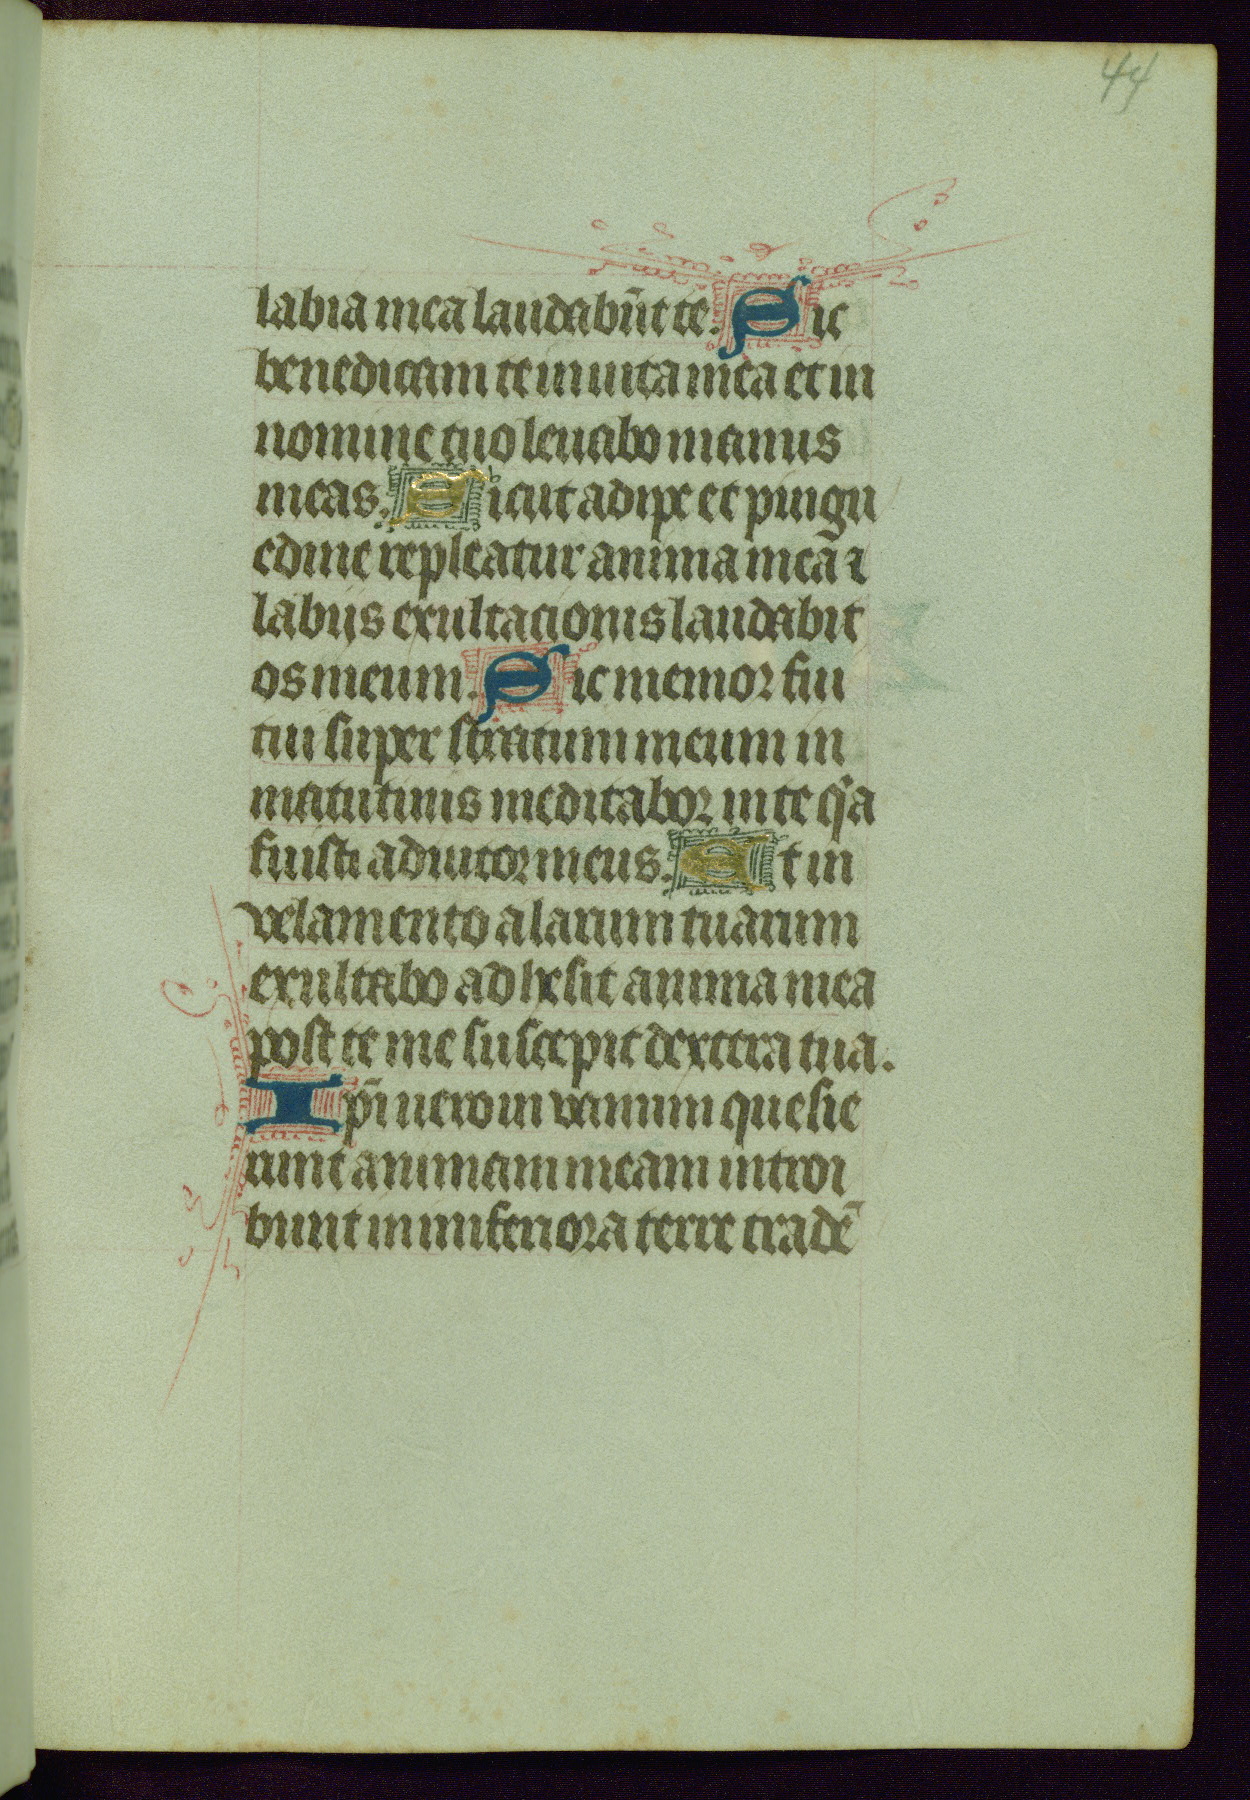 44
labia mea laudabūt te. Sic
benedicam te in uita mea et in
nomine tuo leuabo manus
meas. Sicut adipe et pingu
edine repleatur anima mea ⁊
labijs exultacionis laudabit
os meum. Sic memor fui
tui super stratum meum in
matutinis meditabor in te qͥa
fuisti adiutor meus. Et in
velamento alarum tuarum
exultabo adhesit anima mea
post te me suscepit dextera tua.
Ip̄i uero in vanum quesie
runt animam meam introi
bunt in inferiora terre tradē